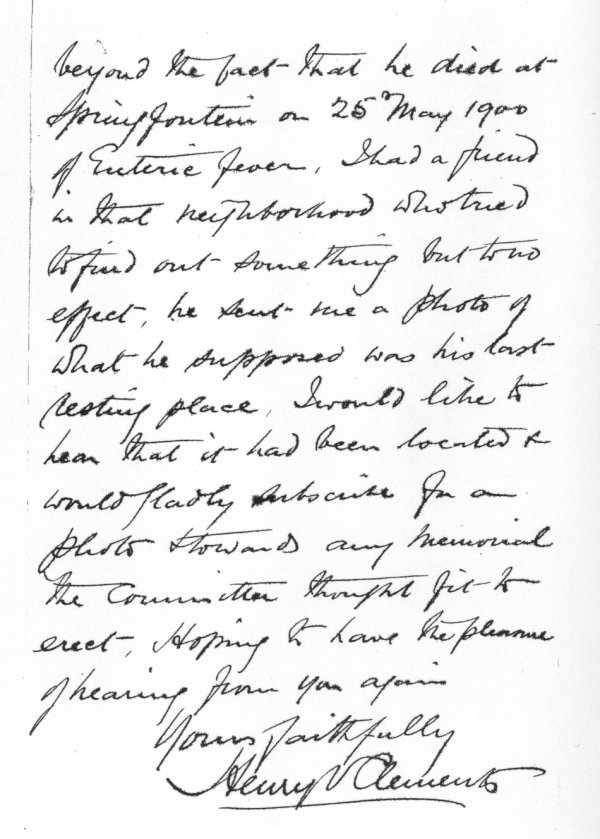 beyond the fact that he died at
Springfontein on 25th May 1900
of Enteric fever, I had a friend
in that neighborhood who tried
to find out something but to no
effect, he sent me a photo of
what he supposed was his last
resting place, I would like to
hear that it had been located &
would gladly subscribe for a
photo & towards any memorial
the Committee thought fit to
erect, Hoping to have the pleasure
of hearing from you again
Yours faithfully
Henry V Clements